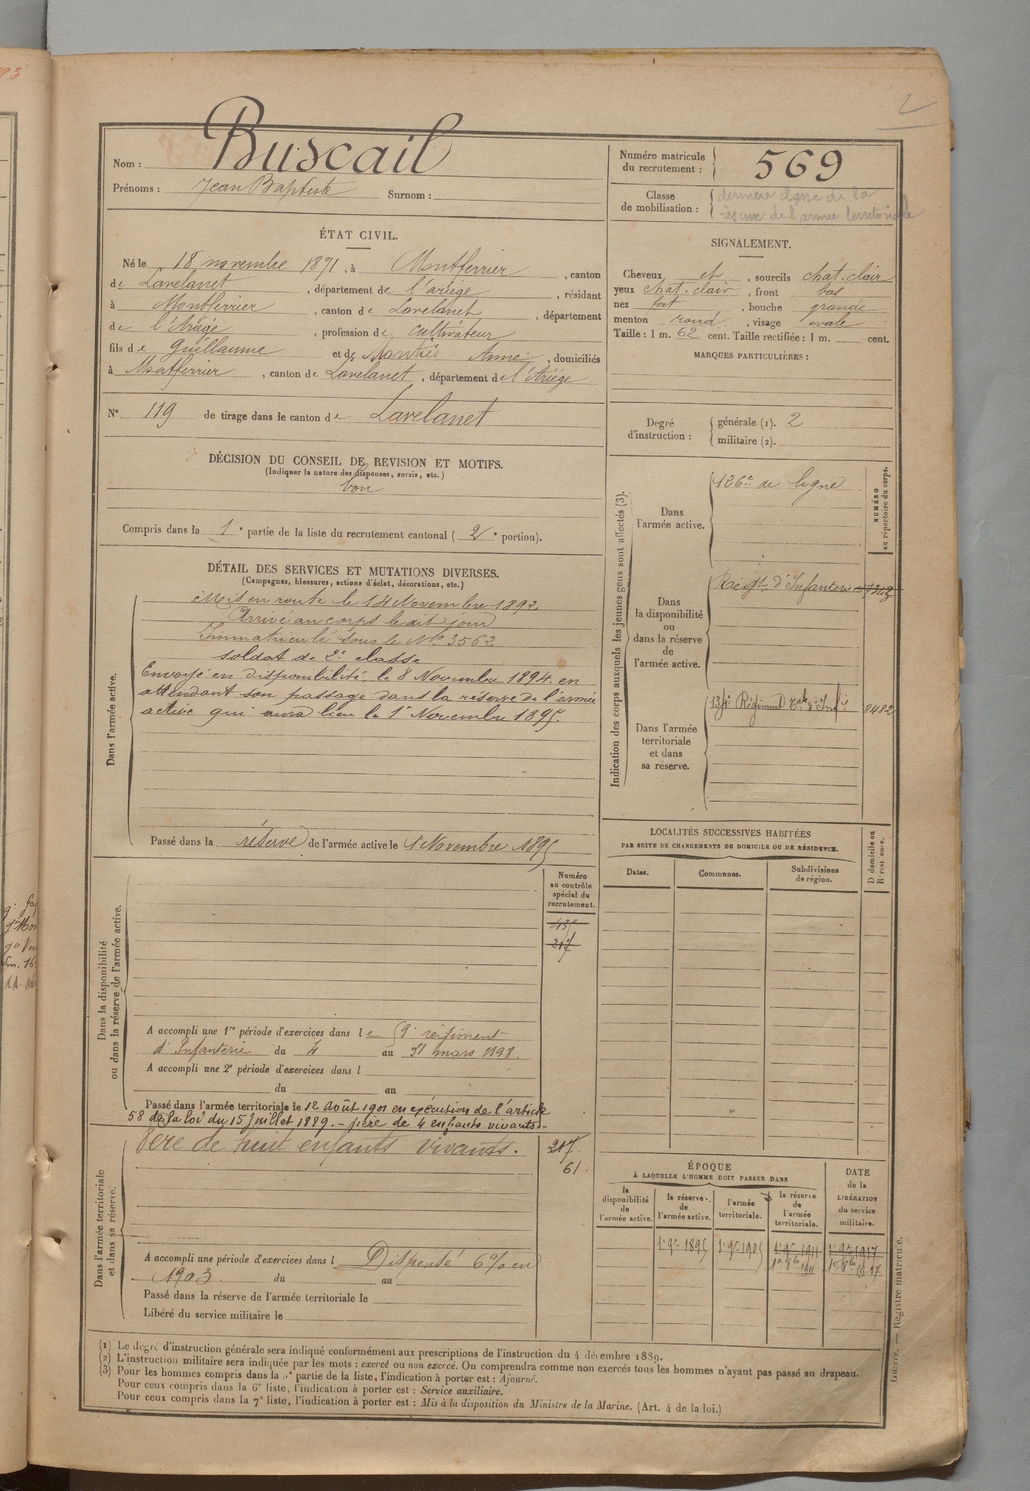 2
Nom : Buscail
Prénoms : Jean Baptiste Surnom :
Numéro matricule du recrutement : 569
Classe de mobilisation : dernière classe de la
réserve de l'armée territoriale
ÉTAT CIVIL.
Né le 18 novembre 1871, à Montferrier, canton
de Lavelanet, département de l'ariège, résidant
à Montferrier, canton de Lavelanet, département
de l'Ariège, profession de cultivateur
fils de Guillaume et de Anne, domiciliés
à Montferrier, canton de Lavelanet, département de l'Ariège
N° 119 de tirage dans le canton de Lavelanet
SIGNALEMENT.
Cheveux et, sourcils chat. clair
yeux chat. clair, front bas
nez fort, bouche grande
menton rond, visage ovale
Taille : 1 m. 62 cent. Taille rectifiée : 1 m. cent.
MARQUES PARTICULIÈRES :
Degré d'instruction : générale (1). 2
militaire (2).
DÉCISION DU CONSEIL DE REVISION ET MOTIFS.
(Indiquer la nature des dispenses, sursis, etc.)
bon
Compris dans la 1e partie de la liste du recrutement cantonal (2e portion).
DÉTAIL DES SERVICES ET MUTATIONS DIVERSES.
(Campagnes, blessures, actions d'éclat, décorations, etc.)
Dans l'armée active.
Mis en route le 14 Novembre 1892
Arrivé au corps le dit jour
Immatriculé sous le No 3562
soldat de 2e classe
Envoyé en disponibilité le 8 Novembre 1894 en
attendant son passage dans la réserve de l'armée
active qui aura lieu le 1er Novembre 1895
Passé dans la réserve de l'armée active le 1 Novembre 1895
Indication des corps auxquels les jeunes gens sont affectés (3).
NUMÉRO au répertoire du corps.
Dans l'armée active.
126e de ligne
Dans la disponibilité ou dans la réserve de l'armée active.
Régt d'Infanterie
Dans l'armée territoriale et dans sa réserve.
Régiment d'Infie
8482
LOCALITÉS SUCCESSIVES HABITÉES
PAR SUITE DE CHANGEMENTS DE DOMICILE OU DE RÉSIDENCE.
D domicile ou R résidence.
Dates. Communes. Subdivisions de région.
Dans la disponibilité ou dans la réserve de l'armée active.
Numéro au contrôle spécial du recrutement.
435
217
A accompli une 1re période d'exercices dans le 9e régiment
d'Infanterie du 4 au 31 mars 1898.
A accompli une 2e période d'exercices dans l
du au
Passé dans l'armée territoriale le 12 Août 1901 en exécution de l'article
58 de la loi du 15 juillet 1889. - père de 4 enfants vivants -
Dans l'armée territoriale et dans sa réserve.
Père de huit enfants vivants.
217
61
A accompli une période d'exercices dans l Dispensé 6% en
1903 du au
Passé dans la réserve de l'armée territoriale le
Libéré du service militaire le
ÉPOQUE
À LAQUELLE L'HOMME DOIT PASSER DANS
la disponibilité de l'armée active.
la réserve de l'armée active.
l'armée territoriale.
la réserve de l'armée territoriale.
DATE de la LIBÉRATION du service militaire.
1er 9bre 1895
1er 9bre 1905
1er 9bre 1911
1er 9bre 1917
(1) Le degré d'instruction générale sera indiqué conformément aux prescriptions de l'instruction du 4 décembre 1889.
(2) L'instruction militaire sera indiquée par les mots : exercé ou non exercé. On comprendra comme non exercés tous les hommes n'ayant pas passé au drapeau.
(3) Pour les hommes compris dans la partie de la liste, l'indication à porter est : Ajourné.
Pour ceux compris dans la 6e liste, l'indication à porter est : Service auxiliaire.
Pour ceux compris dans la 7e liste, l'indication à porter est : Mis à la disposition du Ministre de la Marine. (Art. 4 de la loi.)
Guerre. — Registre matricule.